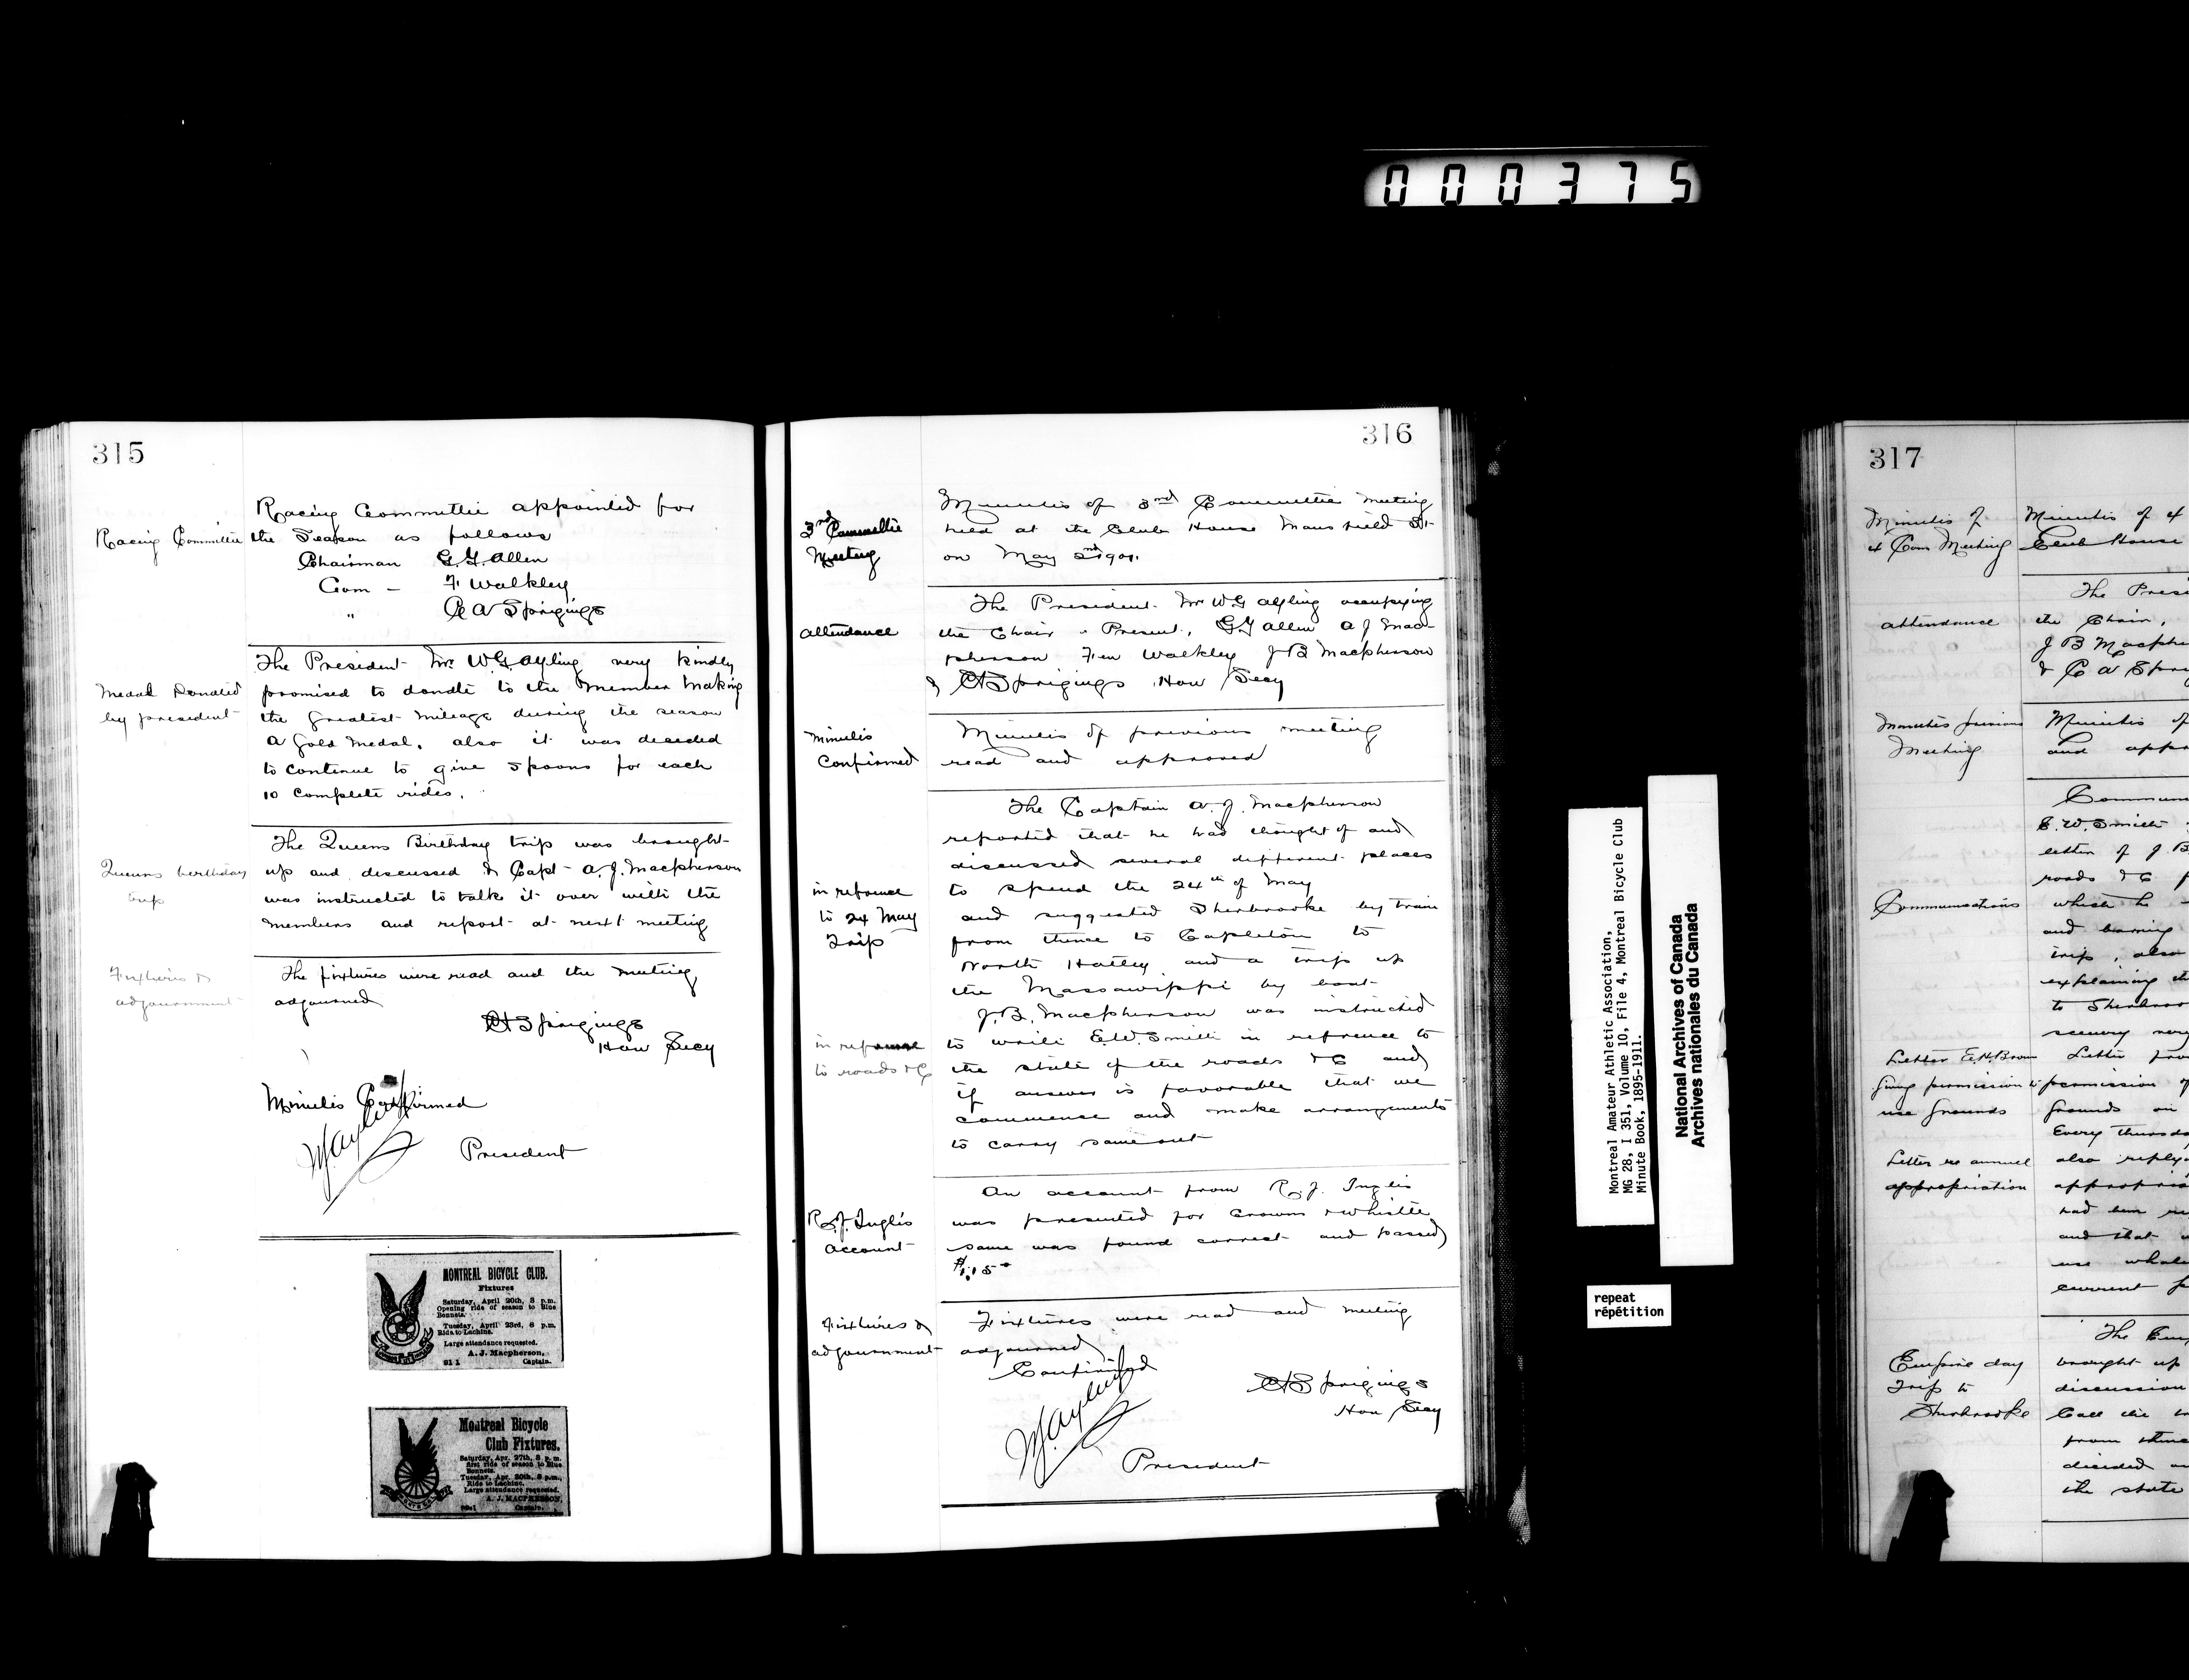 000375
315
Racing Committee appointed for
Racing Committee the Season as follows
Chairman G.G. Allen
Com - F Walkley
" C A Sprigings
The President Mr. W.G. Ayling very kindly
Medal Donated promised to donate to the Member Making
by president the Greatest Mileage during the season
a Gold Medal, also it was decided
to continue to give Spoons for each
10 complete rides.
The Queens Birthday trip was brought
Queens birthday up and discussed & Capt A.J. Macpherson
trip was instructed to talk it over with the
members and report at next meeting
Fixtures & The fixtures were read and the meeting
adjournment adjourned
CA Sprigings
Hon Secy
Minutes Confirmed
W Ayling
President
MONTREAL BICYCLE CLUB.
Fixtures
Saturday, April 20th, 3 p.m.
Opening ride of season to Blue
Bonnets.
Tuesday, April 23rd, 8 p.m.
Ride to Lachine.
Large attendance requested.
A. J. Macpherson,
91 1 Captain.
Montreal Bicycle
Club Fixtures.
Saturday, Apr. 27th, 3 p. m.
first ride of season to Blue
Bonnets.
Tuesday, Apr. 30th, 8 p.m.,
Ride to Lachine.
Large attendance requested.
A. J. MACPHERSON,
Captain.
316
Minutes of 3rd Committee Meeting
3rd Committee held at the Club House Mansfield St
Meeting on May 2nd 1901.
The President Mr W.G Ayling occupying
Attendance the Chair. Present, G.G Allen A J Mac-
pherson F Walkley J B Macpherson
& CA Sprigings Hon Secy
Minutes Minutes of previous meeting
Confirmed read and approved
The Captain A. J. Macpherson
reported that he had thought of and
discussed several different places
in refrence to spend the 24th of May
to 24 May and suggested Sherbrooke by train
Trip from thence to Capleton to
North Hatley and a trip up
the Massawippi by boat
J.B. Macpherson was instructed
in refrence to write E.W. Smith in reference to
to roads &C the state of the roads &C and
if answer is favorable that we
commence and make arrangements
to carry same out
An account from R. J. Inglis
R.J. Inglis was presented for Crowns & Whistle
Account same was found correct and passed
$1.15
Fixtures & Fixtures were read and meeting
adjournment adjourned
Confirmed
CA Sprigings
Hon Secy
W Ayling
President
Montreal Amateur Athletic Association,
MG 28, I 351, Volume 10, File 4, Montreal Bicycle Club
Minute Book, 1895-1911.
National Archives of Canada
Archives nationales du Canada
repeat
répétition
317
Minutes of Minutes of 4
4 Com Meeting Club House
The Presi
attendance the Chair,
J B Macphe
& C A Sprig
Minutes previous Minutes of
Meeting and appr
Commun
E.W. Smith
letter of J.B
roads &C
Communications which he
and
trip, also
explaining th
to Sherbroo
scenery very
Letter E.H. Brown Letter from
giving permission to permission of
use Grounds Grounds on
Every Thursd
Letter re annual also reply
appropriation appropria
had been re
and that
use whole
current
The Emp
Empire day brought up
Trip to discussion
Sherbrooke Call the
from thence
decided
the state